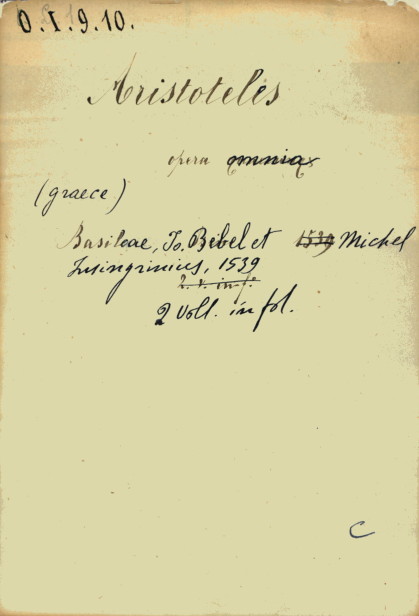 O.I.9.10.
Aristoteles
opera omnia
(graece)
Basileae, Jo. Bebel et 1539 Michel
Insingrinius, 1539
2. v. in f.
2 Voll. in fol.
C